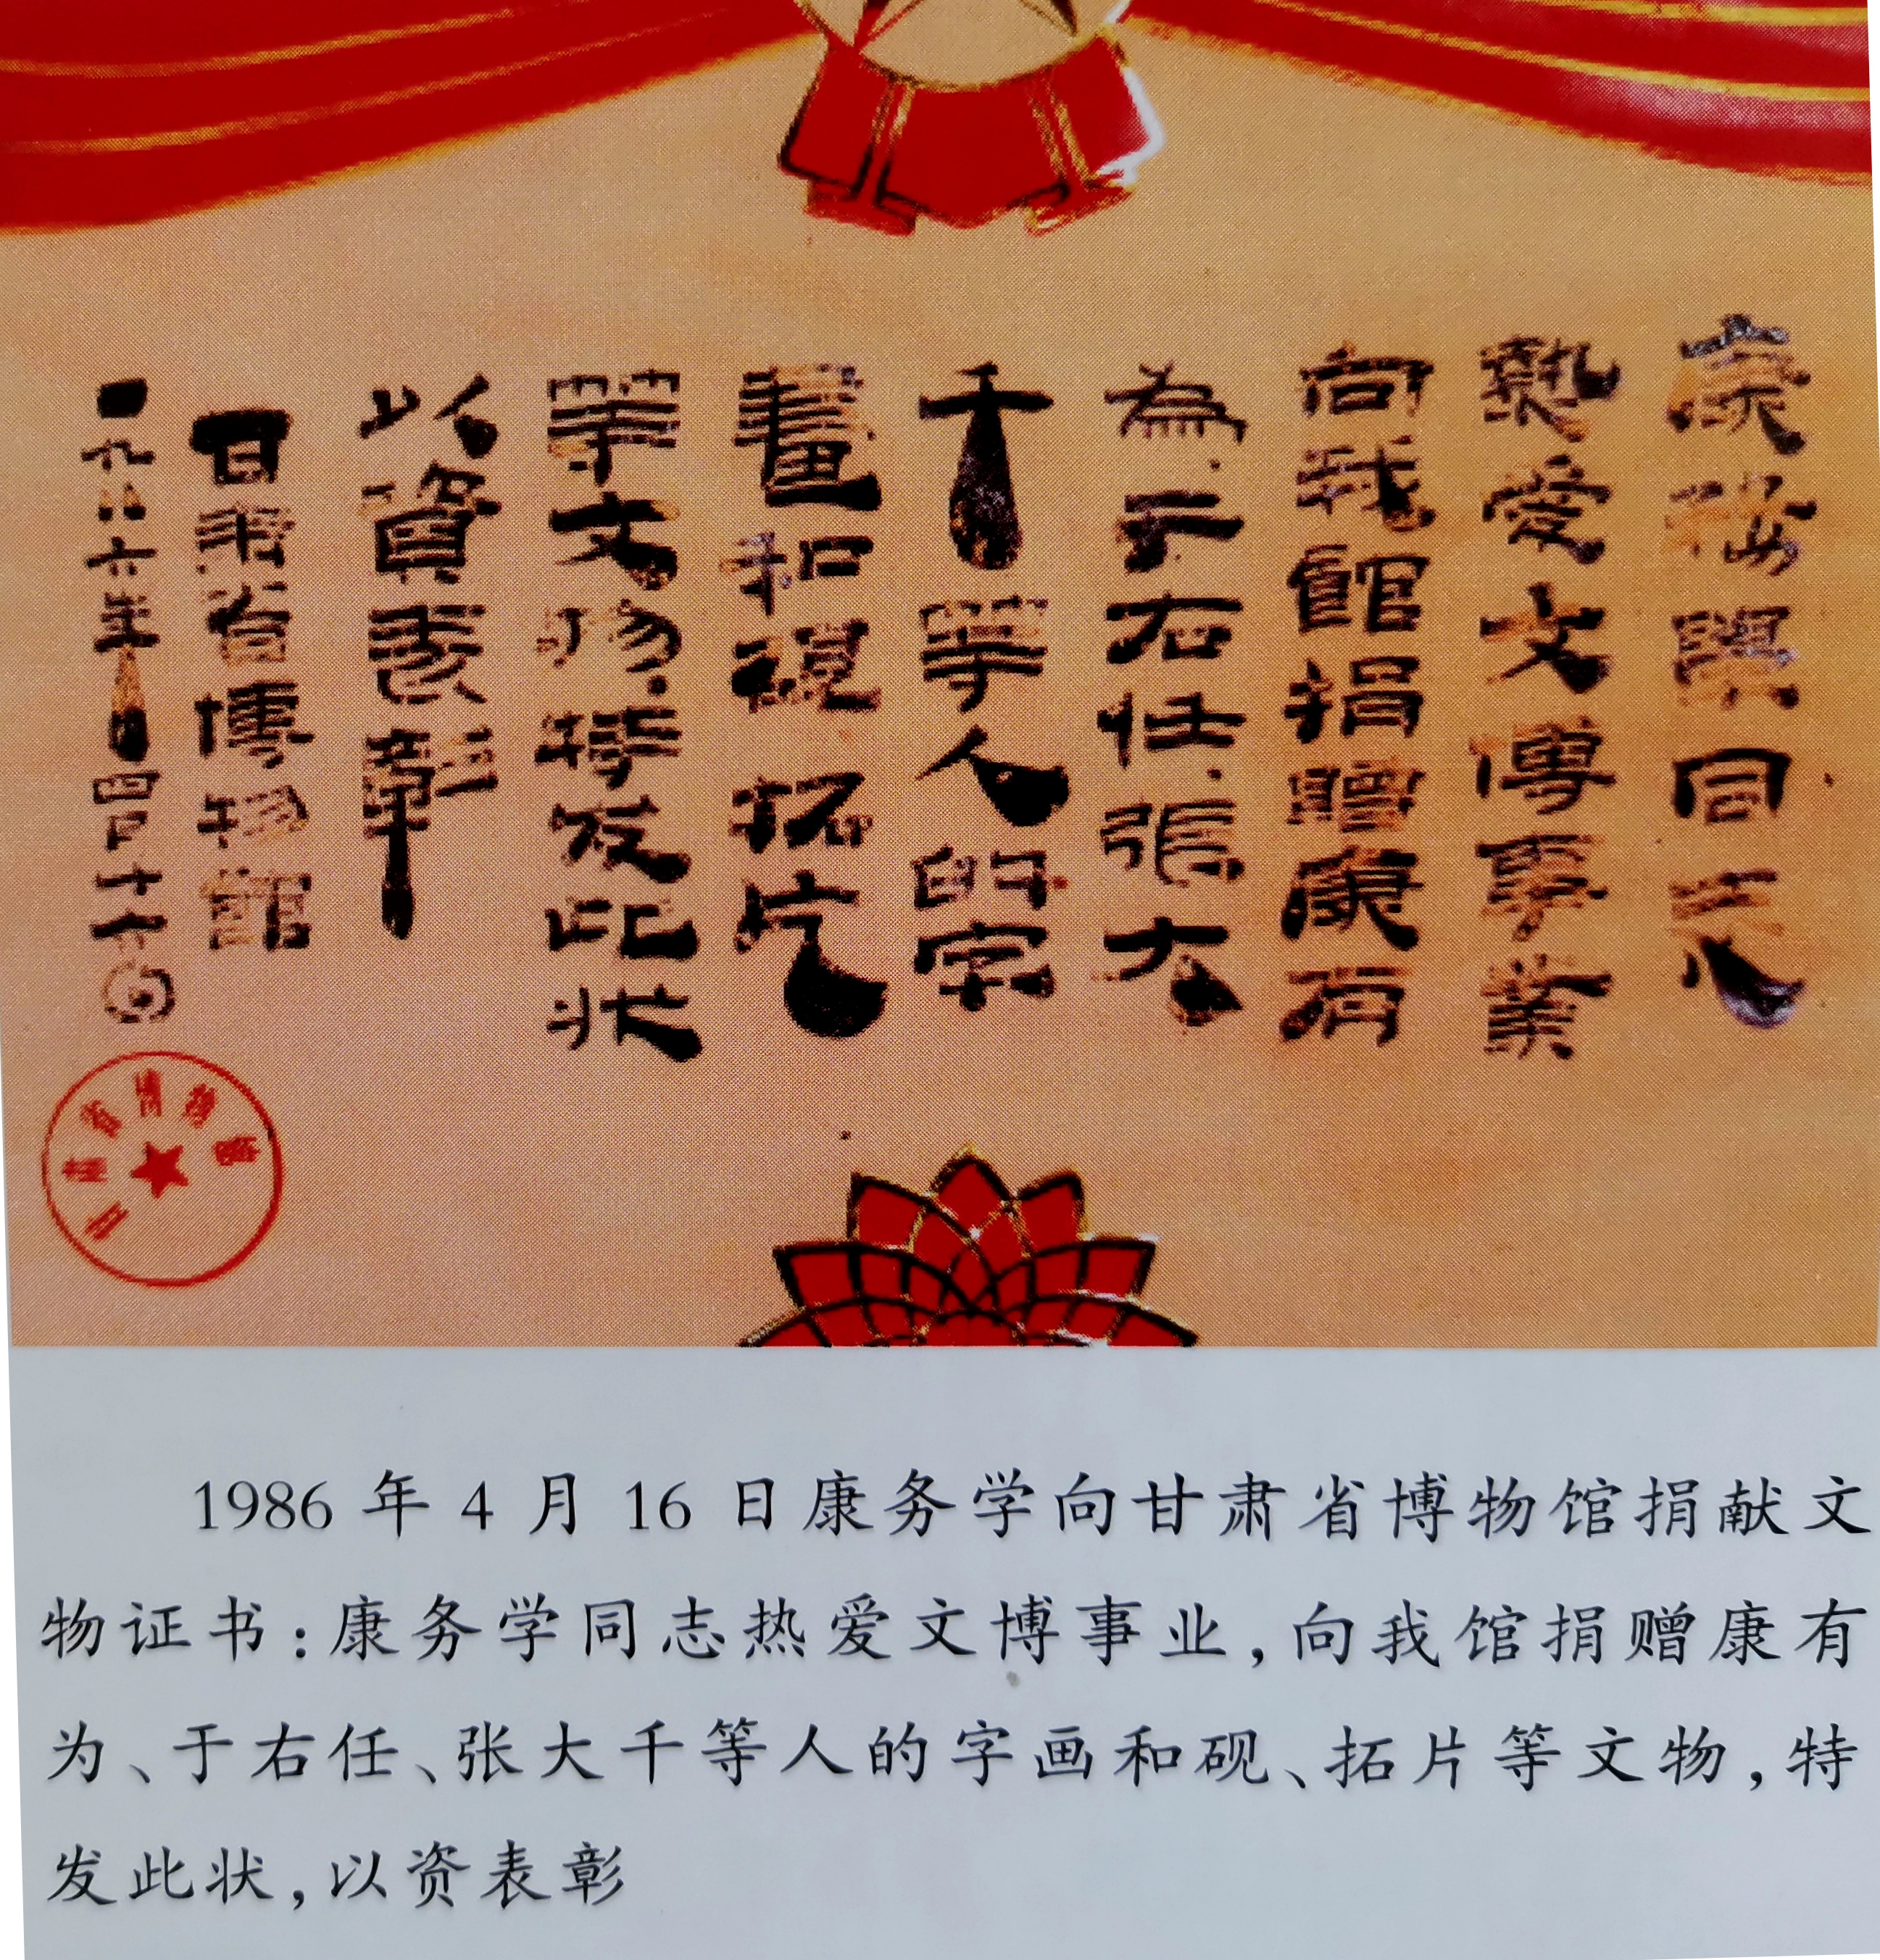 康務學同志
熱愛文博事業
向我館捐贈康有
為、于右任、張大
千等人的字
畫和硯、拓片
等文物、特发此状
以資表彰
甘肅省博物館
一九八六年四月十六日
甘肅省博物館
1986年4月16日康务学向甘肃省博物馆捐献文
物证书：康务学同志热爱文博事业，向我馆捐赠康有
为、于右任、张大千等人的字画和砚、拓片等文物，特
发此状，以资表彰